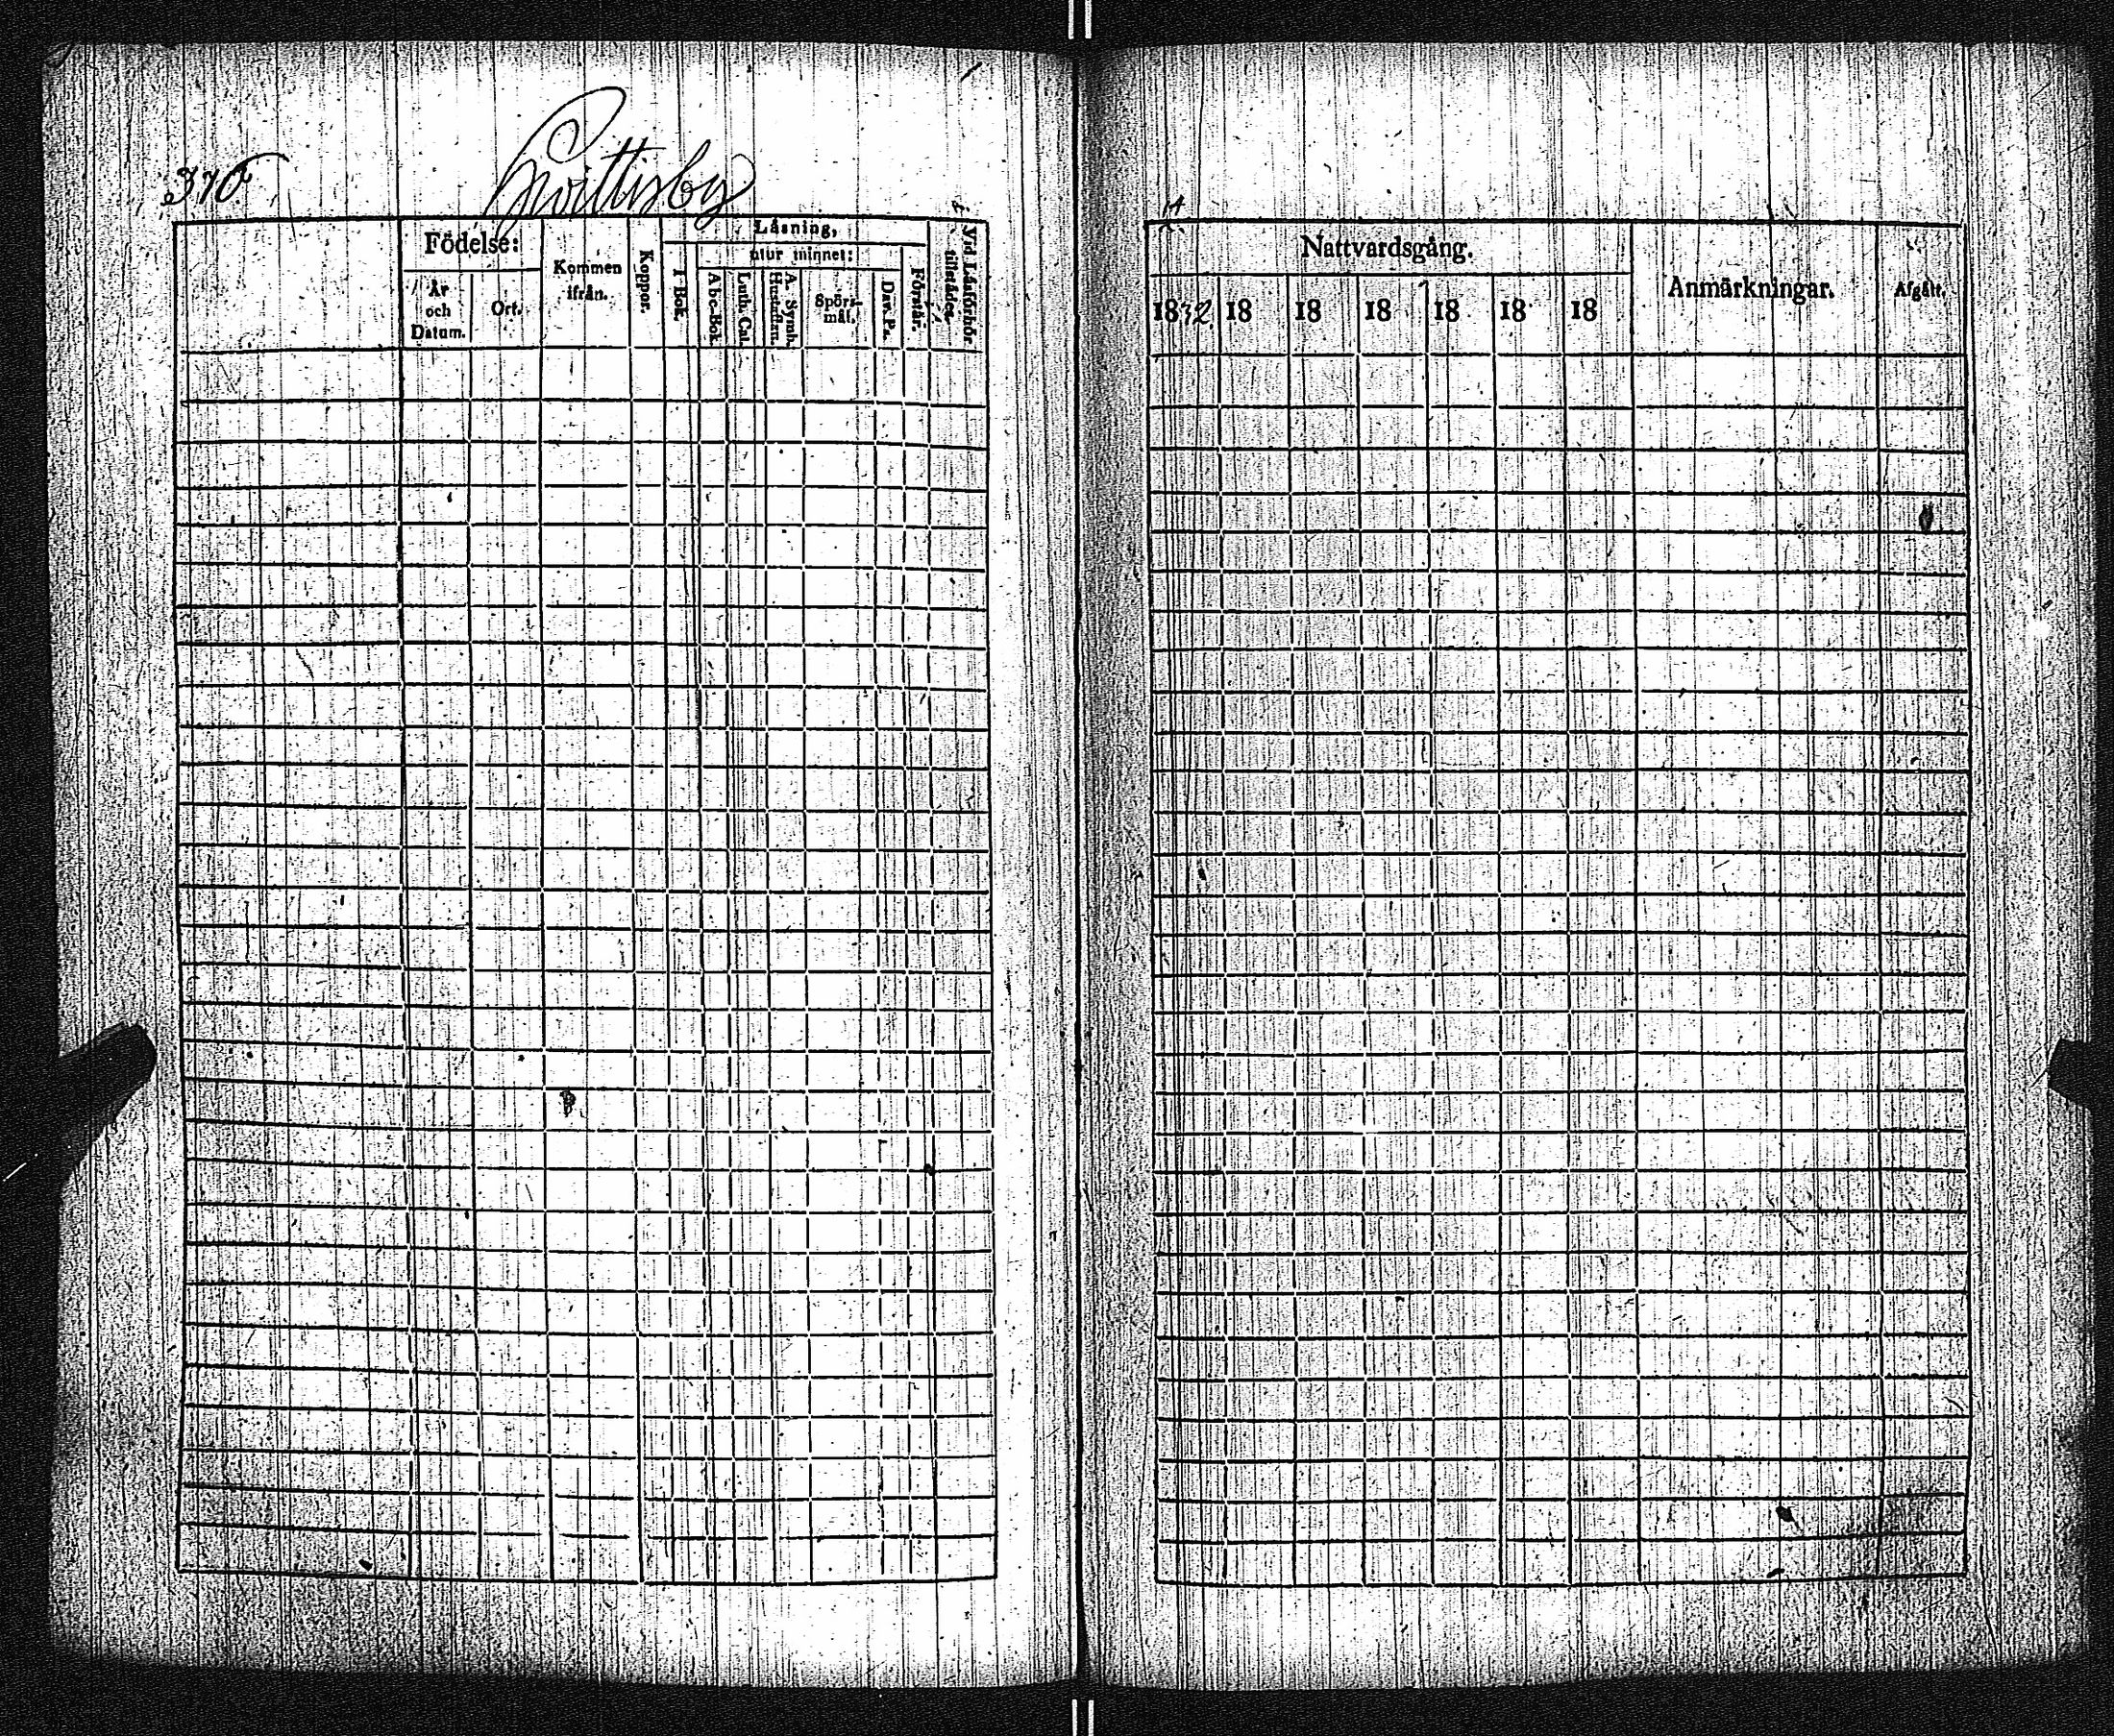 376
Svittisby
Födelse:
År och Datum.
Ort.
Kommen ifrån.
Koppor.
Läsning,
I Bok.
utur minnet:
Abc-Bok.
Luth. Cat.
A. Symb. Hustaflan.
Spörsmål.
Dav. Ps.
Förstår.
Vid Läsförhör tillstädes.
Nattvardsgång.
1832.
18
18
18
18
18
18
Anmärkningar.
Afgått.